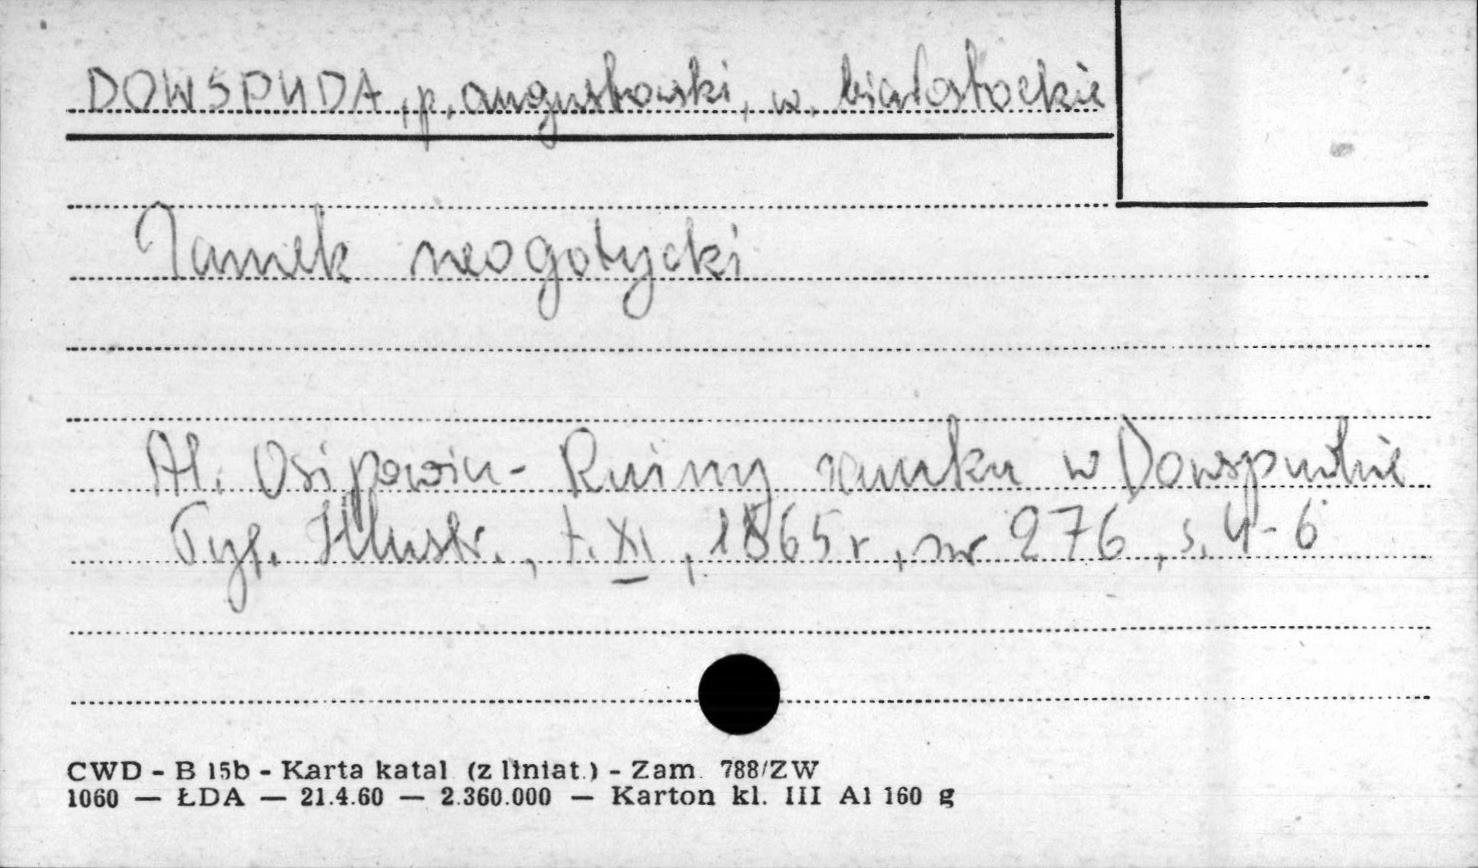 DOWSPUDA, p. augustowski, w. białostockie
Zamek neogotycki
Al. Osipowicz - Ruiny zamku w Dowspudzie
Tyg. Illustr., t. XI, 1865 r, nr 276, s. 4-6
CWD - B 15b - Karta katal (z liniat.) - Zam. 788/ZW
1060 — ŁDA — 21.4.60 — 2.360.000 — Karton kl. III A1 160 g